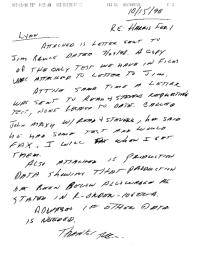 10/15/98
RE: HARRIS FEE 1
LYNN
ATTACHED IS LETTER SENT TO
JIM BRUCE DATED
A COPY
OF THE ONLY TEST WE HAVE IN FILES
WAS ATTACHED TO LETTER TO JIM.
AT THE SAME TIME A LETTER
WAS SENT TO READ & STEVENS REQUESTING
TEST, NONE SENT TO DATE. CALLED
JOHN MAXEY W/ READ & STEVENS, HE SAID
HE HAD SOME TEST AND WOULD
FAX. I WILL FAX WHEN I GET
THEM.
ALSO ATTACHED IS PRODUCTION
DATA SHOWING THAT PRODUCTION
HAS BEEN BELOW ALLOWABLE AS
STATED IN R-ORDER
ADVISE IF OTHER DATA
IS NEEDED.
THANKS